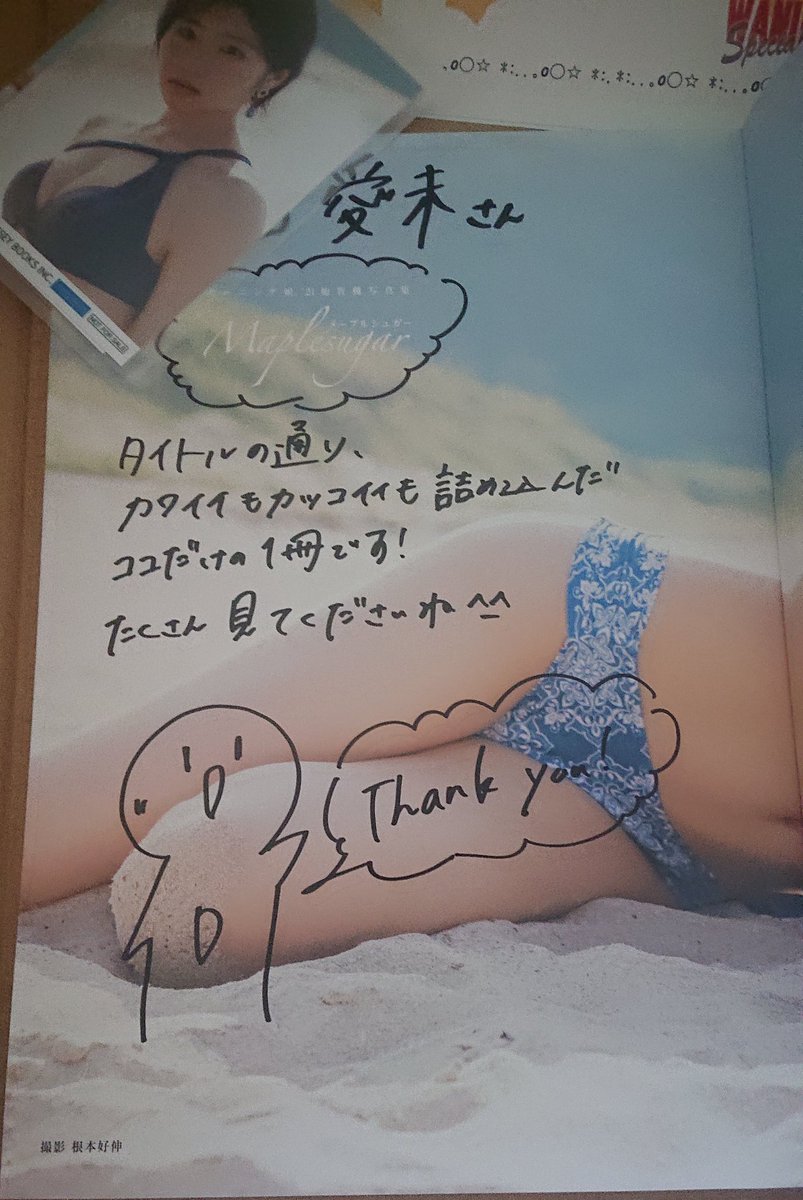 Special
.o○☆ *:..｡o○☆ *:.*:..｡o○☆ *:..｡o
愛未さん
写真集
メープルシュガー
Maplesugar
タイトルの通り、
カワイイもカッコイイも詰め込んだ
ココだけの1冊です！
たくさん見てくださいね^^
Thank you!
BOOKS INC.
NOT FOR SALE
撮影 根本好伸